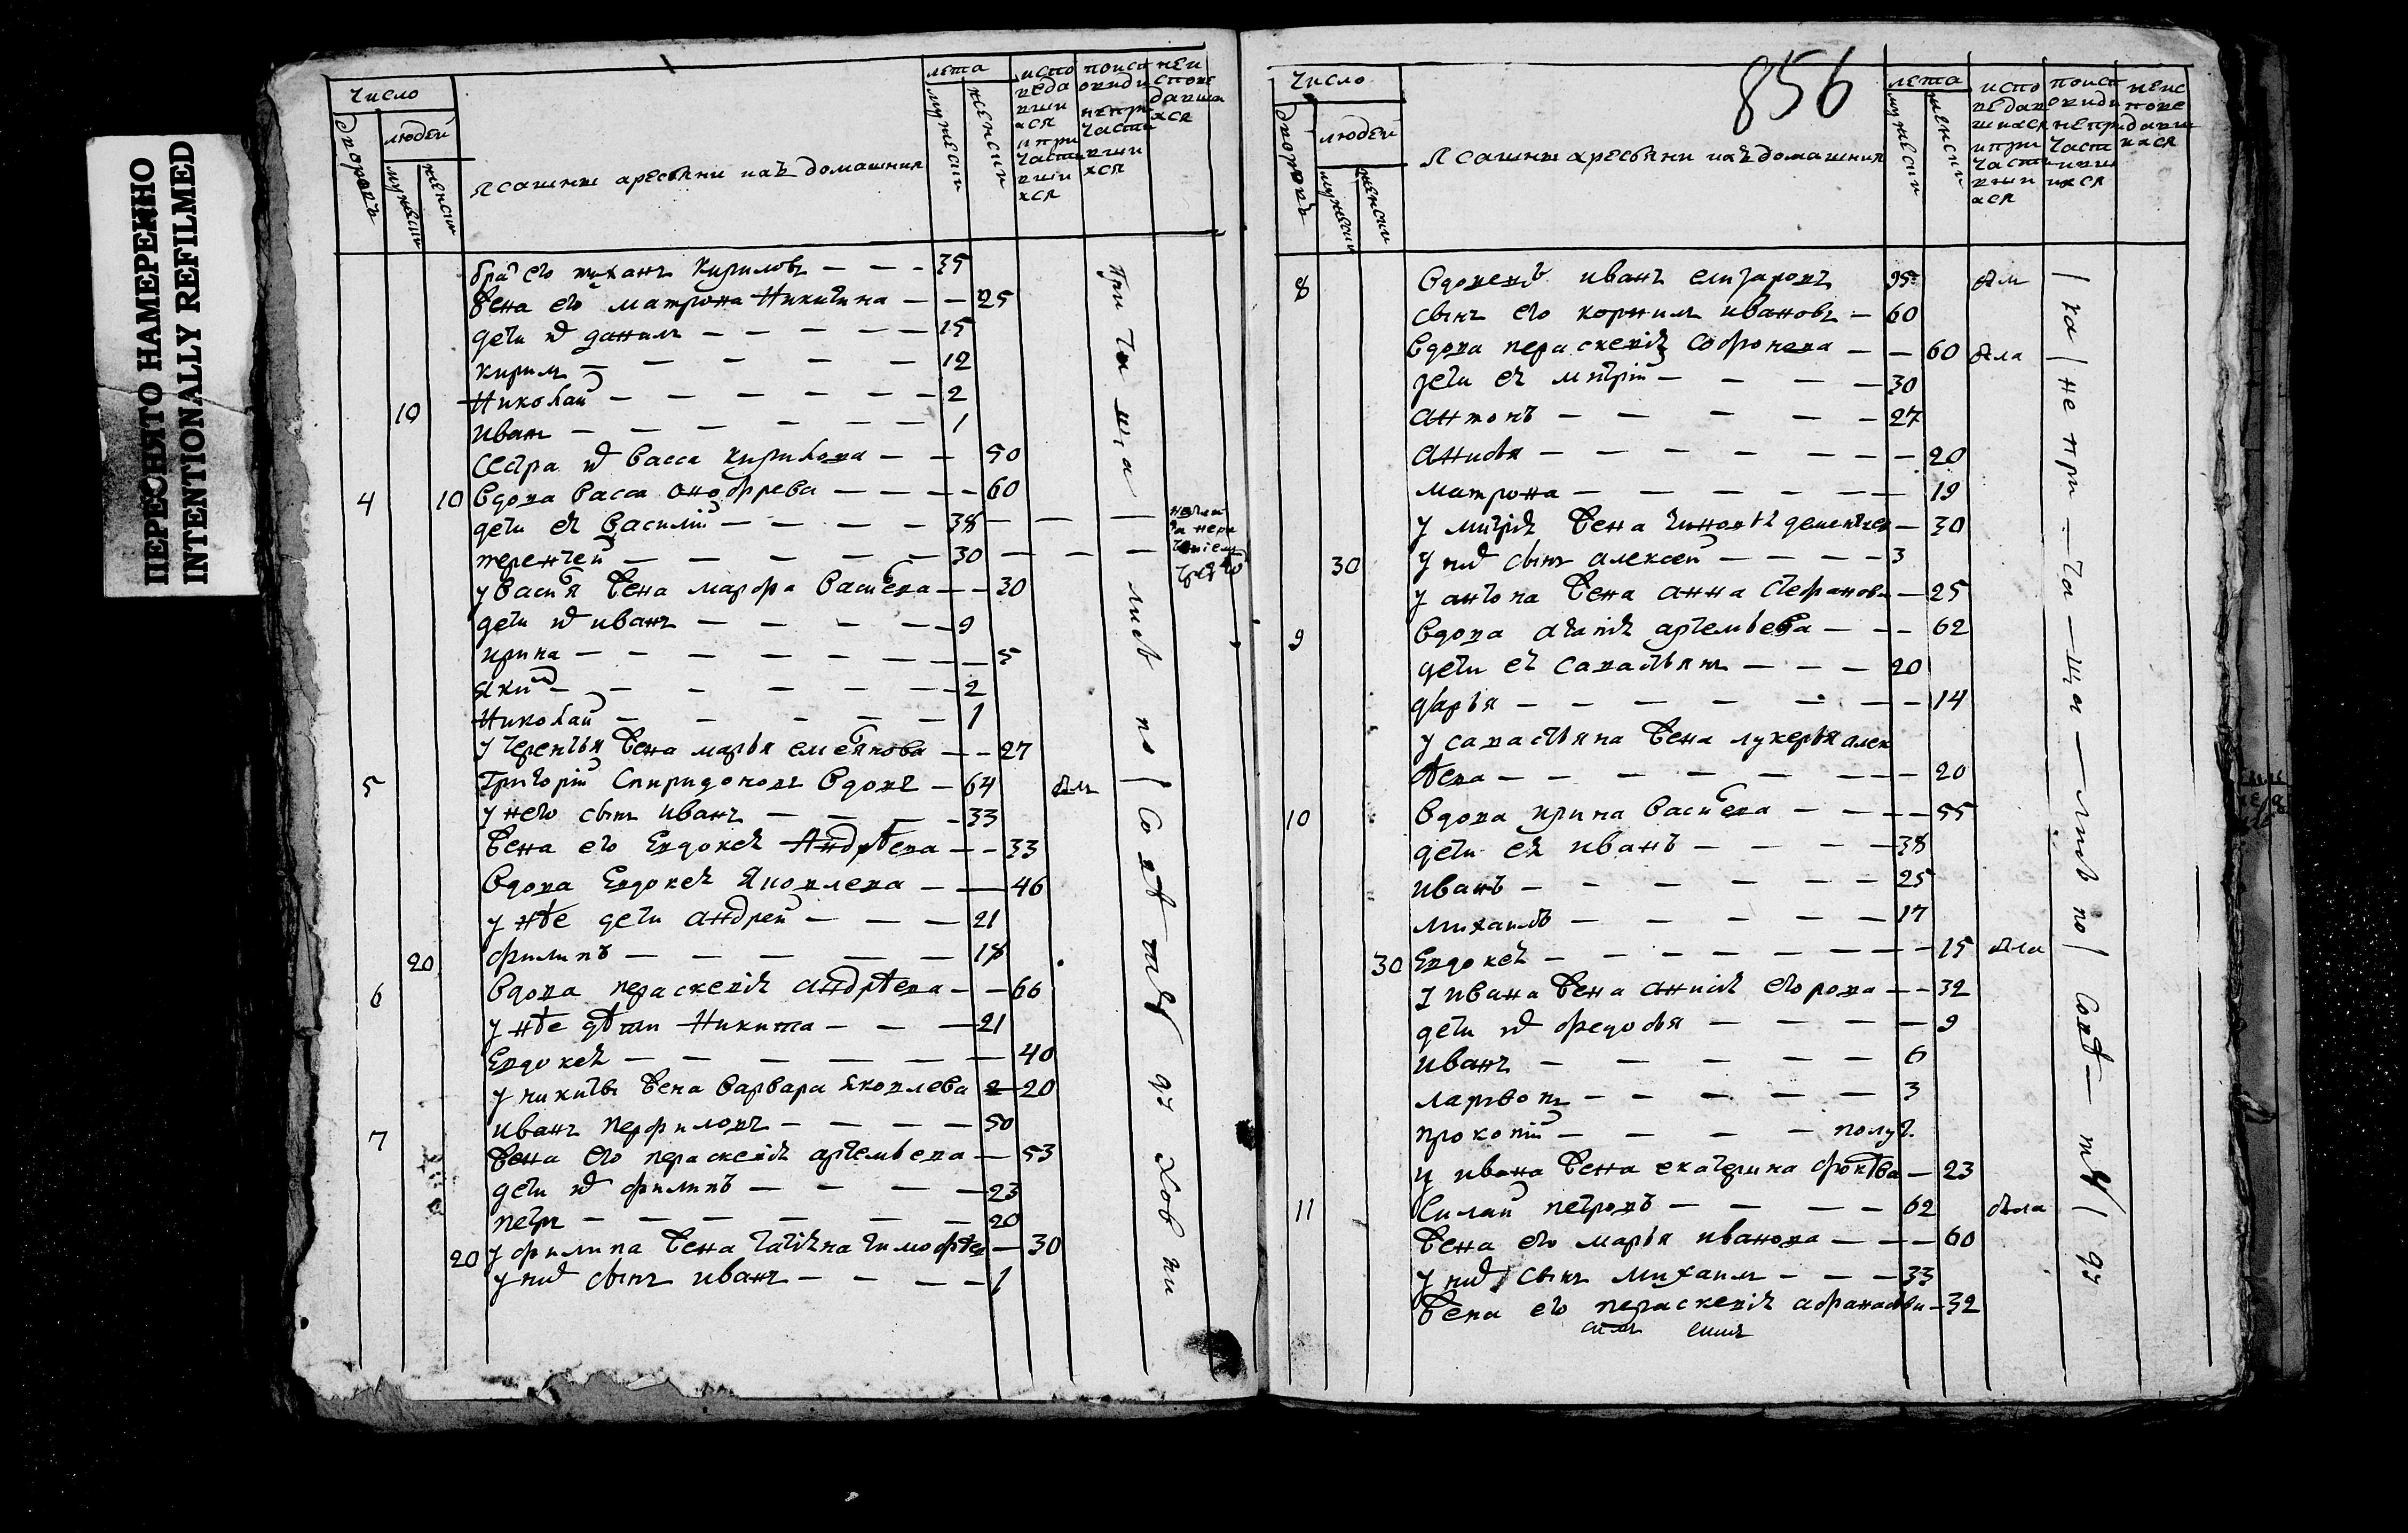 ПЕРЕСНЯТО НАМЕРЕННО
INTENTIONALLY REFILMED
число
дворовъ
людей
мужеска
женска
Ясашные кресьяни ихъ домашния
лета
мужеска
женска
испо
веда
вши
хся
и при
части
вши
хся
неи
спове
давши
хся
бра его Кириловъ — — — 35
жена его матрона Никитина — — 25
дети их данилъ — — — — — 15
кирилъ — — — — — 12
Николай — — — — — — 2
10 Иван — — — — — — 1
сестра их васса кирилова — — 50
4 10 вдова васса онофрева — — — — 60
дети ея василий — — — — 38 — — —
терентей — — — — — 30 — — —
у васил жена марфа васильева — — 30
дети их иванъ — — — — — 9
ирина — — — — — — — 5
Яким — — — — — — — 2
Николай — — — — — 1
у терентья жена марья емельянова — — 27
5 Григорий Спиридоновъ вдовъ — 64
у него сынъ иванъ — — — — 33
жена его Евдокея Андрѣева — — 33
вдова Евдокея Яковлева — — 46
у нѣе дети андрей — — — 21
20 филипъ — — — — — 18
6 вдова параскевия андрѣева — — 66
у нѣе дѣти Никита — — — 21
Евдокея — — — — — — 40
у никиты жена варвара Яковлева — 20
7 иванъ перфиловъ — — — — 50
жена его параскевия артемьева — 53
дети их филипъ — — — — 23
петръ — — — — — — 20
20 у филипа жена татияна тимофѣев — 30
у них сынъ иванъ — — — — 1
при ча ща лись по / совѣту ду ховни
856
число
дворовъ
людей
мужеска
женска
Ясашные кресьяни ихъ домашния
лета
мужеска
женска
испо
ведав
шихся
и при
части
вши
хся
неис
пове
давши
хся
8 вдовецъ иванъ елизаровъ 95
сынъ его корнилъ ивановъ — 60
вдова параскевия софронева — — 60
дети ея митрий — — — — 30
антонъ — — — — — 27
анисья — — — — — — — 20
матрона — — — — — — 19
у митрия жена — 30
30 у них сынъ алексей — — — — 3
у антона жена анна стефанова — 25
9 вдова агапия артемьева — — — 62
дети ея савастьянъ — — — 20
дарья — — — — — — — 14
у савастьяна жена лукерья алек
ѣева — — — — — — — — 20
10 вдова ирина васильева — — — — 55
дети ея иванъ — — — — 38
иванъ — — — — — — 25
михаилъ — — — — — 17
30 Евдокея — — — — — — — — 15
у ивана жена анисия егорова — — 32
дети их федосья — — — — 9
иванъ — — — — — 6
ларивонъ — — — — — 3
прокопий — — — — полуг.
у ивана жена екатерина — 23
11 Силай петровъ — — — — 62
жена его марья иванова — — — 60
у них сынъ михаилъ — — — 33
жена его параскевия афанасьева — 32
/ ха / не при — ча — ща — лись по / совѣ — ту / ду